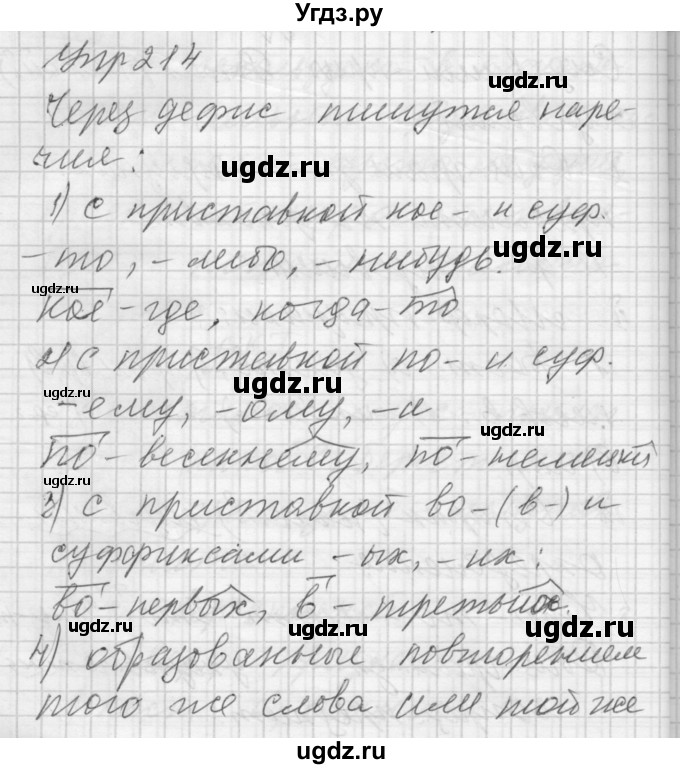 Угдз.ру
Упр 214
ugdz.ru
Через дефис пишутся наре-
чия:
ugdz.ru
1) с приставкой кое- и суф.
-то, -либо, -нибудь.
ugdz.ru
ugdz.ru
кое-где, когда-то
2) с приставкой по- и суф.
ugdz.ru
ugdz.ru
-ему, -ому, -и
ugdz.ru
по-весеннему, по-немецки
3) с приставкой во- (в-) и
суффиксами -ых, -их:
во-первых, в-третьих.
ugdz.ru
ugdz.ru
ugdz.ru
4) образованные повторением
того же слова или той же
ugdz.ru